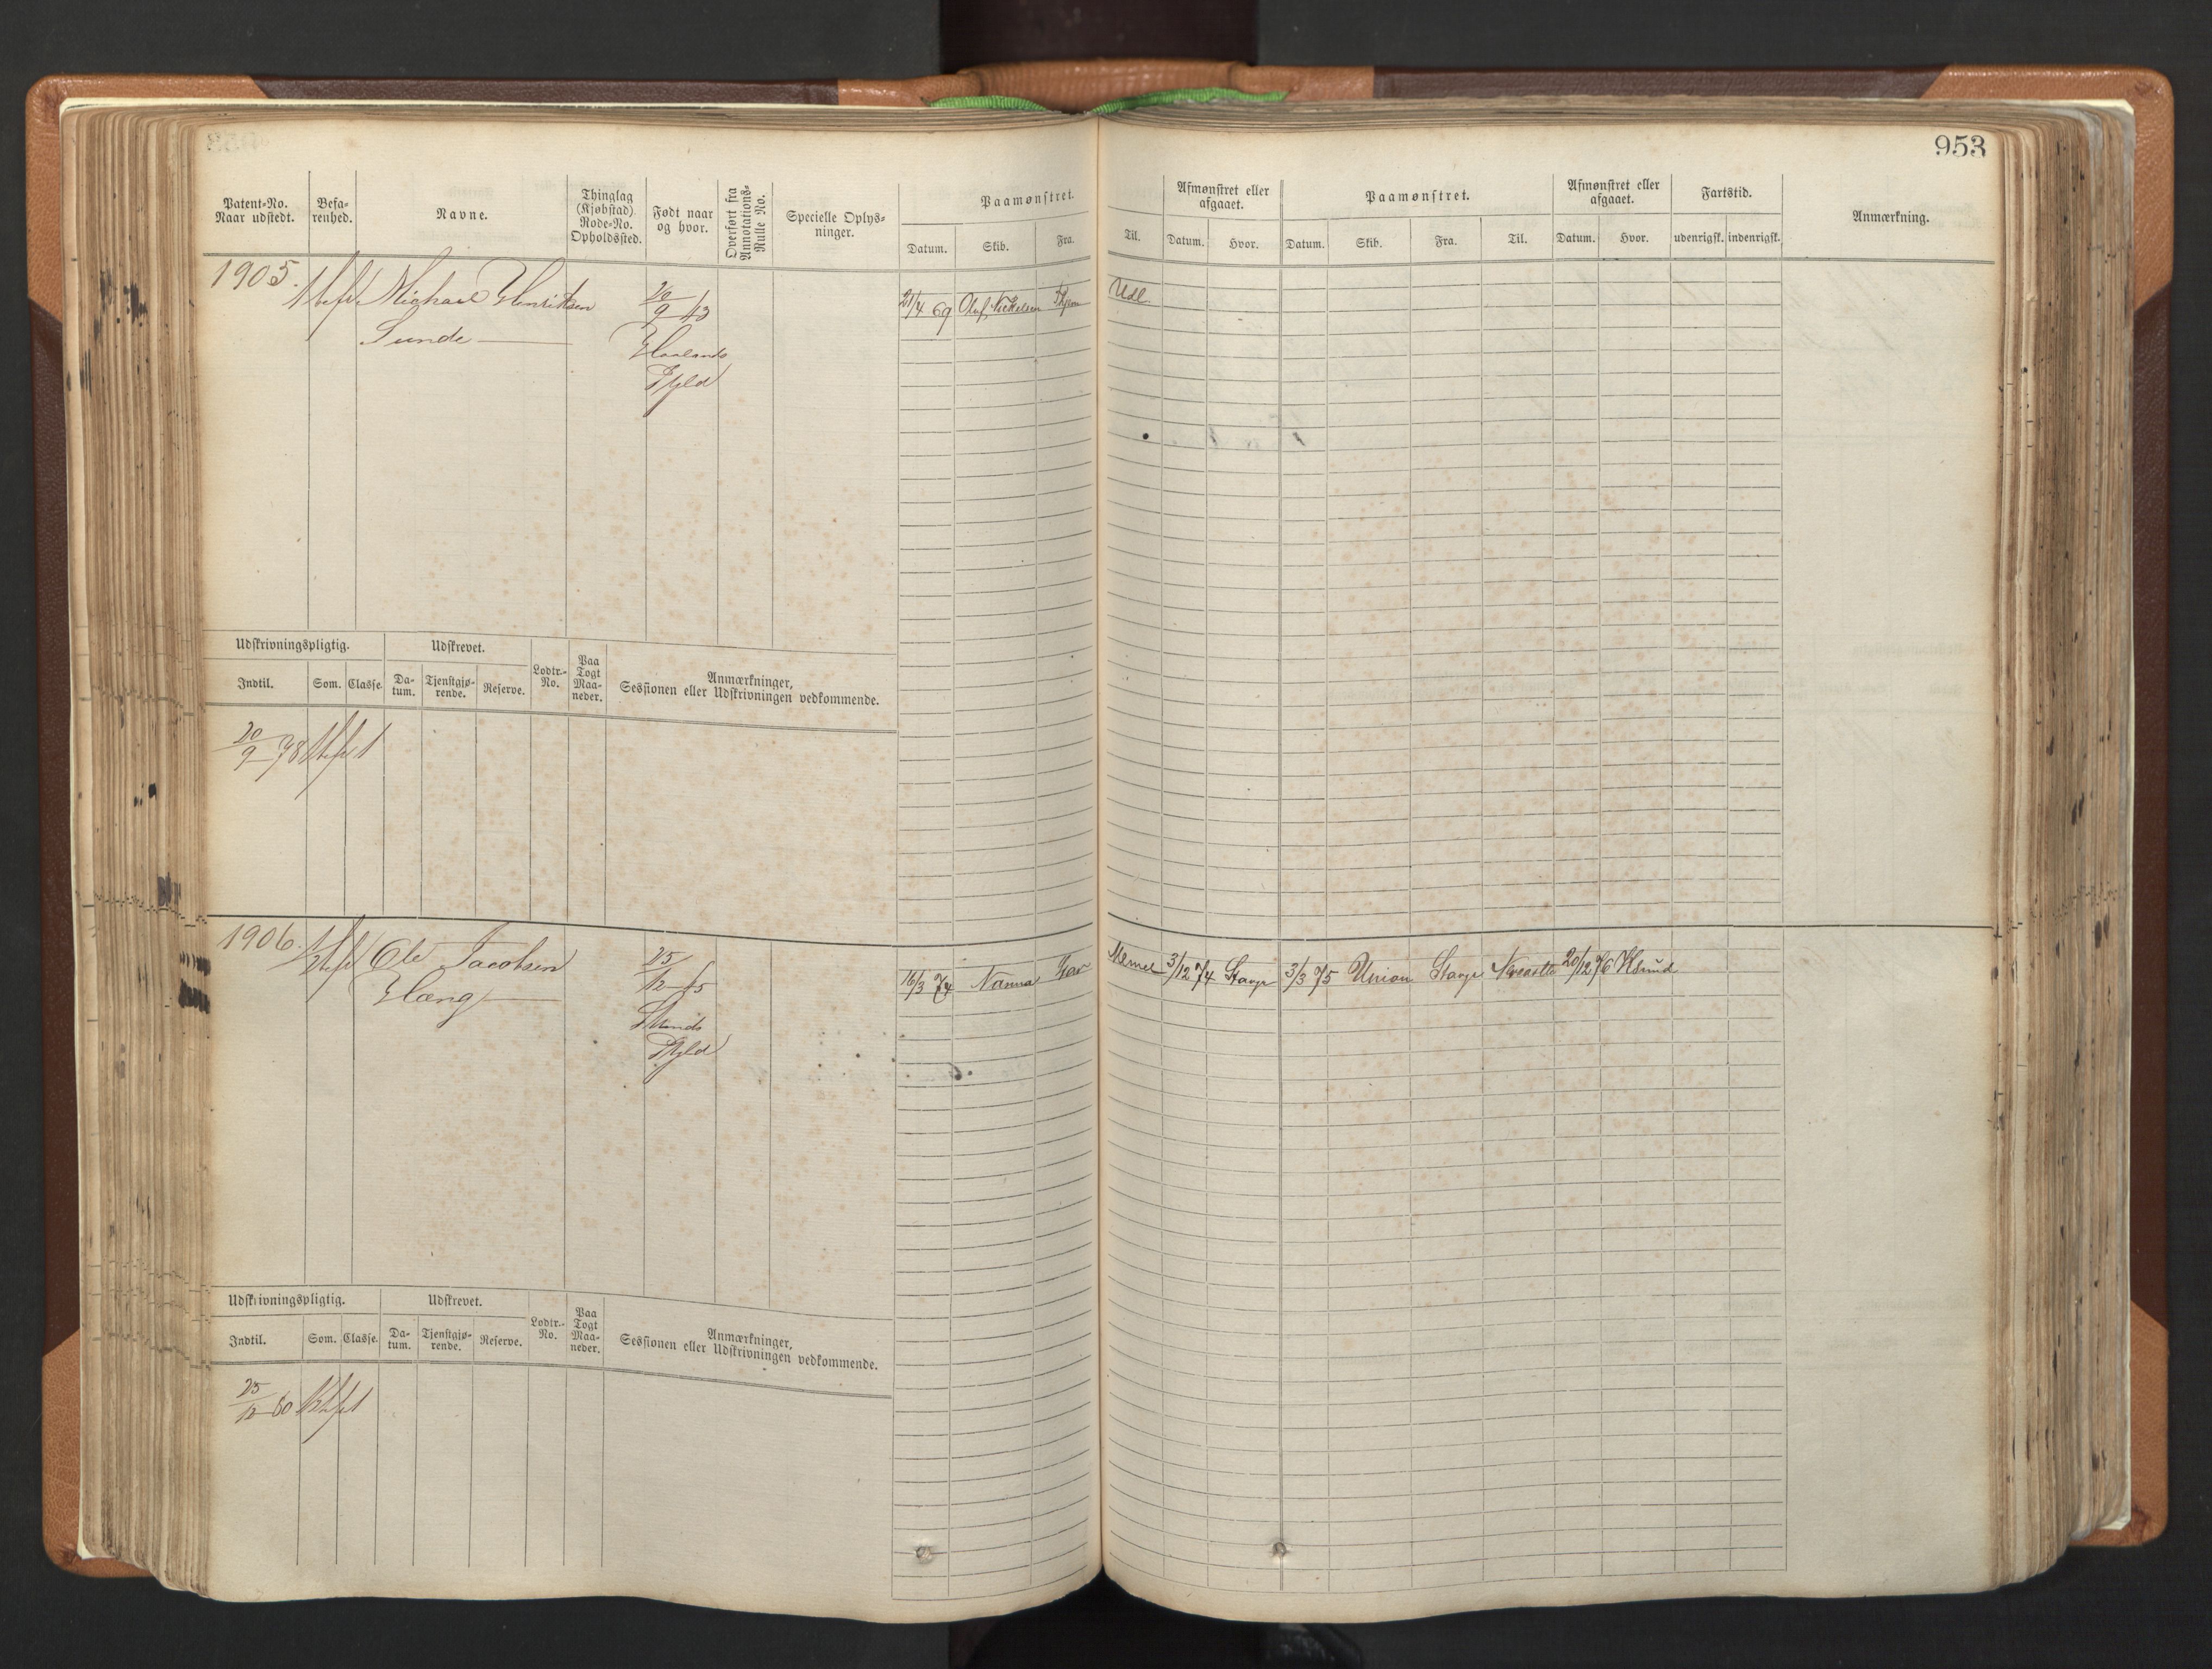 953
Patent-No.
Naar udstedt.
Befa-
renhed.
Navne.
Thinglag
(Kjøbstad)
Rode-No.
Opholdssted.
Født naar
og hvor.
Overført fra
Annotations-
Rulle No.
Specielle Oplys-
ninger.
Paamønstret.
Datum. Skib. Fra. Til.
Afmønstret eller
afgaaet.
Datum. Hvor.
Paamønstret.
Datum. Skib. Fra. Til.
Afmønstret eller
afgaaet.
Datum. Hvor.
Fartstid.
udenrigsk. indenrigsk.
Anmærkning.
1905.
Michael Henriksen
Sunde
20/9 43
Haalands
Pgld
21/4 69 Oluf Nickelsen Udl.
Udskrivningspligtig.
Indtil. Som. Classe.
Udskrevet.
Da-
tum.
Tjenstgjø-
rende.
Reserve.
Lodtr.-
No.
Paa
Togt
Maa-
neder.
Anmærkninger,
Sessionen eller Udskrivningen vedkommende.
20/9 78
1906.
Ole Jacobsen
Hæng
25/12 45
Pgld
16/3 74 Nanna Memel 3/12 74 Stavgr 3/3 75 Union Stavgr Newcastle 20/12 76 KSund
Udskrivningspligtig.
Indtil. Som. Classe.
Udskrevet.
Da-
tum.
Tjenstgjø-
rende.
Reserve.
Lodtr.-
No.
Paa
Togt
Maa-
neder.
Anmærkninger,
Sessionen eller Udskrivningen vedkommende.
25/12 80